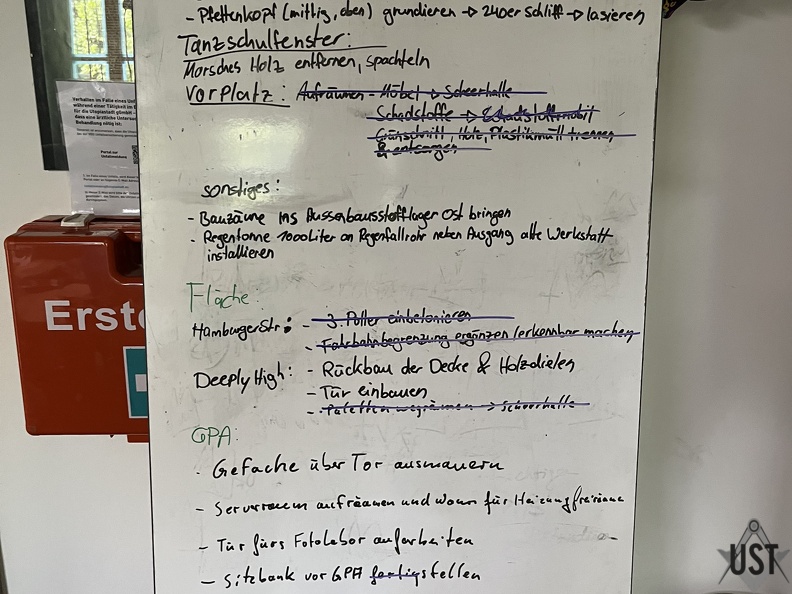 - Pfettenkopf (mittig, oben) grundieren → 240er Schliff → lasieren
Tanzschulfenster:
Morsches Holz entfernen, spachteln
Vorplatz: Aufräumen - Möbel → Scheerhalle
Schadstoffe → Schadstoffmobil
Grünschnitt, Holz, Plastikmüll trennen
& entsorgen
sonstiges:
- Bauzäune ins Aussenbausstofflager Ost bringen
- Regentonne 1000 Liter an Regenfallrohr neben Ausgang alte Werkstatt
installieren
Fläche:
HamburgerStr: - 3. Poller einbetonieren
- Fahrbahnbegrenzung ergänzen / erkennbar machen
DeeplyHigh: - Rückbau der Decke & Holzdielen
- Tür einbauen
- Paletten wegräumen → Scheerhalle
GPA:
- Gefache über Tor ausmauern
- Serverraum aufräumen und Wand für Heizung freiräumen
- Tür fürs Fotolabor aufarbeiten
- Sitzbank vor GPA fertigstellen
Verhalten im Falle eines
während einer Tätigkeit im
für die Utopiastadt gGmbH -
dass eine ärztliche
Behandlung nötig ist:
Portal zur
Unfallmeldung
Erste
UST